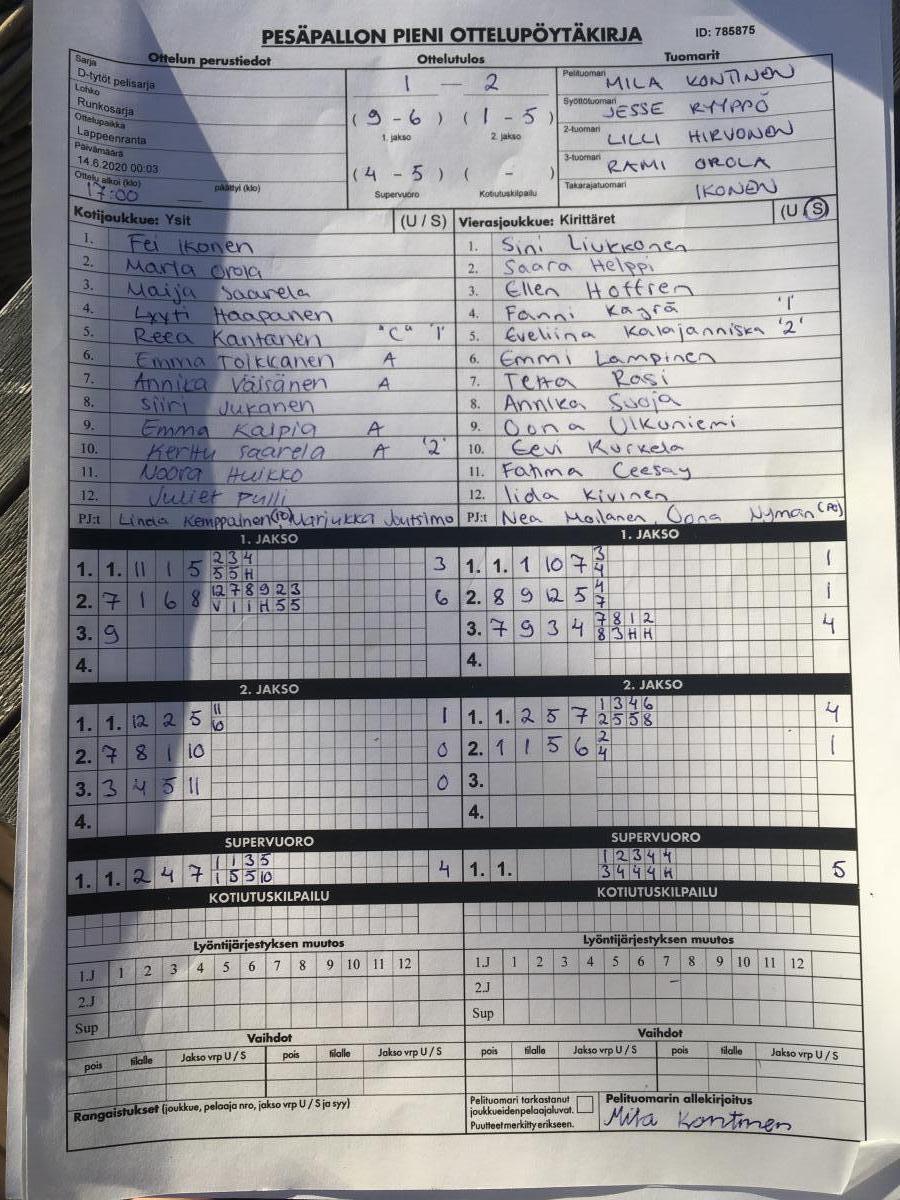 PESÄPALLON PIENI OTTELUPÖYTÄKIRJA ID: 785875
Ottelun perustiedot Ottelutulos Tuomarit
Sarja
D-tytöt pelisarja
Lohko
Runkosarja
Ottelupaikka
Lappeenranta
Päivämäärä
14.6.2020 00:03
Ottelu alkoi (klo) päättyi (klo)
17:00
1 — 2
( 9 - 6 ) ( 1 - 5 )
1. jakso 2. jakso
( 4 - 5 ) ( - )
Supervuoro Kotiutuskilpailu
Pelituomari MILA KONTINEN
Syöttötuomari JESSE RYYPPÖ
2-tuomari LILLI HIRVONEN
3-tuomari RAMI OROLA
Takarajatuomari IKONEN
Kotijoukkue: Ysit (U / S) Vierasjoukkue: Kirittäret (U / S)
1. Fei Ikonen 1. Sini Liukkonen
2. Marla Orola 2. Saara Helppi
3. Maija Saarela 3. Ellen Hoffren
4. Lyyti Haapanen 4. Fanni Käyrä '1'
5. Reea Kantanen "C" '1' 5. Eveliina Kalajanniska '2'
6. Emma Tolkkanen A 6. Emmi Lampinen
7. Annika Väisänen A 7. Tetta Rasi
8. Siiri Jukanen 8. Annika Suoja
9. Emma Kaipia A 9. Oona Ulkuniemi
10. Kerttu Saarela A '2' 10. Eevi Kurkela
11. Noora Huikko 11. Fatima Ceesay
12. Juliet Pulli 12. Iida Kivinen
PJ:t Linda Kemppainen (PJ) Marjukka Joutsimo PJ:t Nea Moilanen, Oona Nyman (PJ)
1. JAKSO 1. JAKSO
2 3 4 3
1. 1. 11 1 5 5 5 H 3 1. 1. 1 10 7 4 1
12 7 8 9 2 3 4
2. 7 1 6 8 V 1 1 H 5 5 6 2. 8 9 12 5 7 1
7 8 1 2
3. 9 3. 7 9 3 4 8 3 H H 4
4. 4.
2. JAKSO 2. JAKSO
11 1 3 4 6
1. 1. 12 2 5 10 1 1. 1. 2 5 7 2 5 5 8 4
2
2. 7 8 1 10 0 2. 1 1 5 6 4 1
3. 3 4 5 11 0 3.
4. 4.
SUPERVUORO SUPERVUORO
1 1 3 5 1 2 3 4 4
1. 1. 2 4 7 1 5 5 10 4 1. 1. 3 4 4 4 H 5
KOTIUTUSKILPAILU KOTIUTUSKILPAILU
Lyöntijärjestyksen muutos Lyöntijärjestyksen muutos
1.J 1 2 3 4 5 6 7 8 9 10 11 12 1.J 1 2 3 4 5 6 7 8 9 10 11 12
2.J 2.J
Sup Sup
Vaihdot Vaihdot
pois tilalle Jakso vrp U / S pois tilalle Jakso vrp U / S pois tilalle Jakso vrp U / S pois tilalle Jakso vrp U / S
Rangaistukset (joukkue, pelaaja nro, jakso vrp U / S ja syy)
Pelituomari tarkastanut
joukkueiden pelaajaluvat.
Puutteet merkitty erikseen.
Pelituomarin allekirjoitus
Mila Kontinen